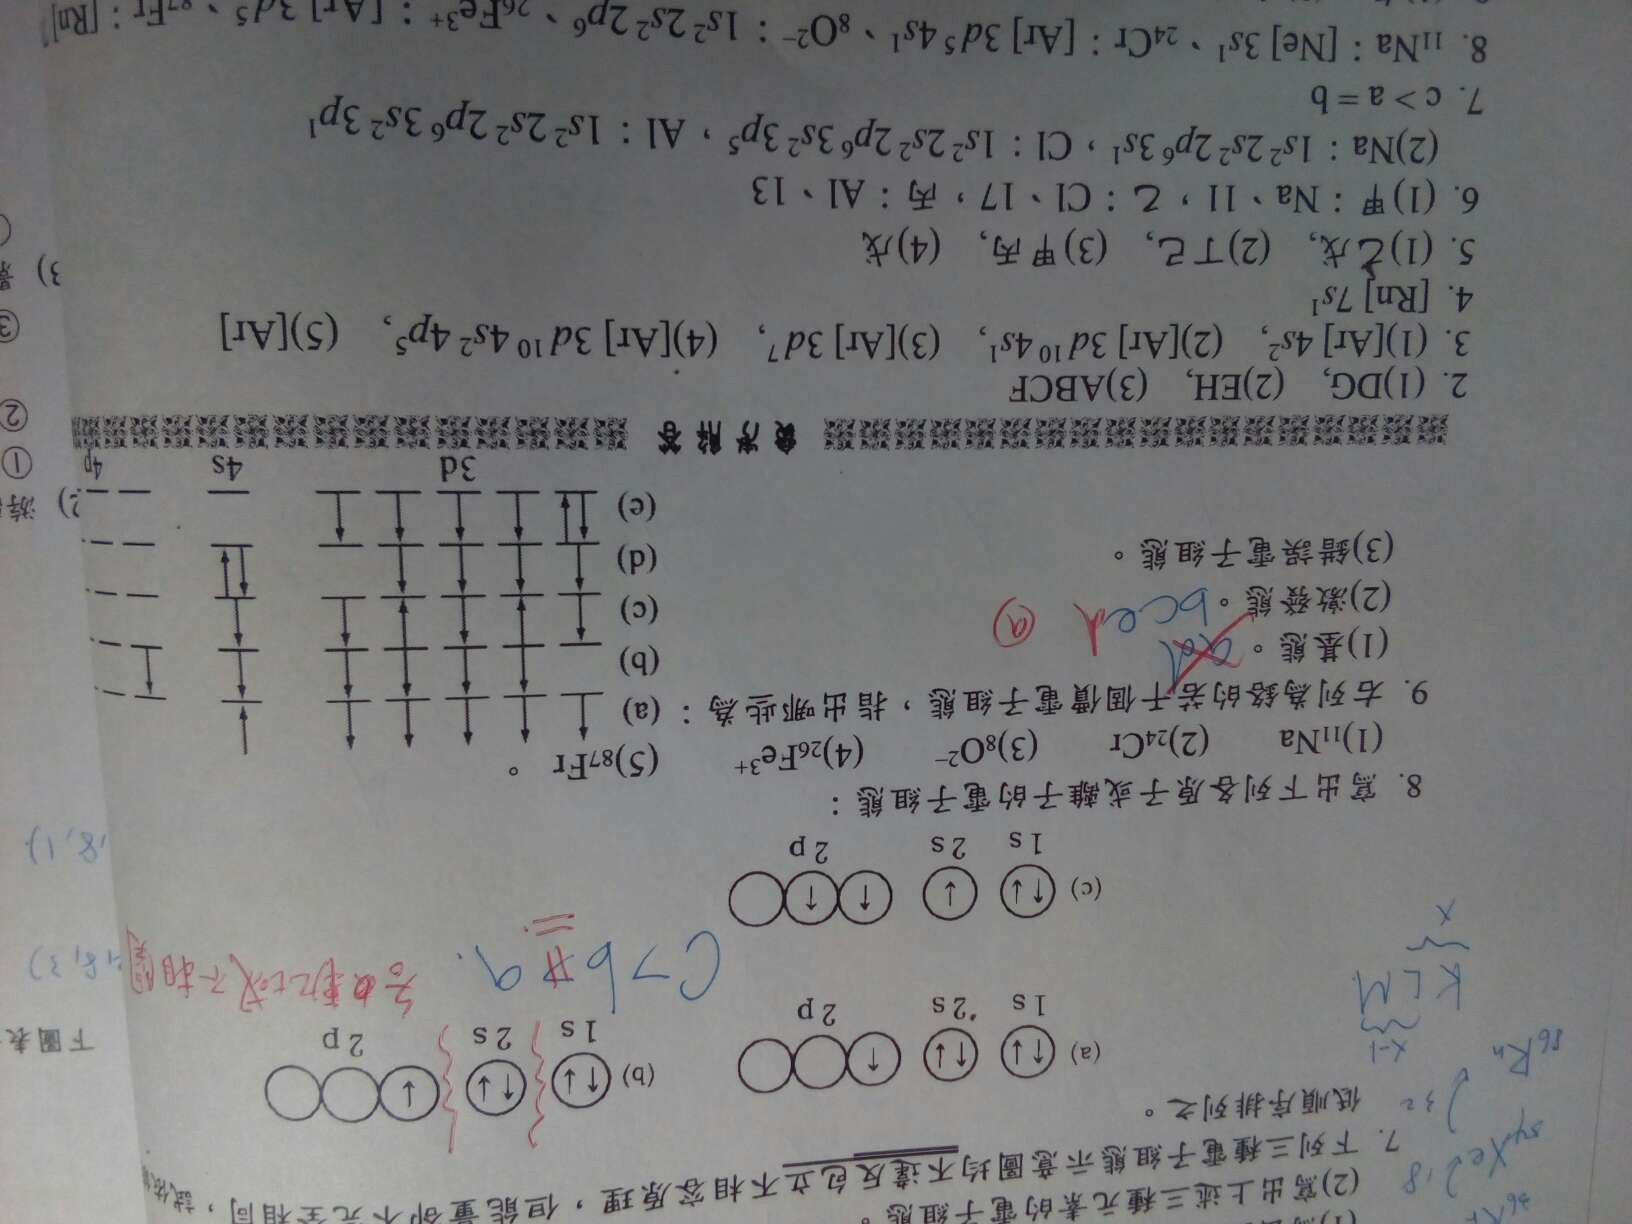 (2)寫出上述三種元素的電子組態。
7. 下列三種電子組態示意圖均不違反包立不相容原理，但能量卻不完全相同，試依
低順序排列之。
(a) ↑↓ ↑↓ ↑
1s 2s 2p
(b) ↑↓ ↑↓ ↓
1s 2s 2p
C>b 井 a.
(c) ↑↓ ↓ ↑ ↑
1s 2s 2p
8. 寫出下列各原子或離子的電子組態：
(1)₁₁Na (2)₂₄Cr (3)₈O²⁻ (4)₂₆Fe³⁺ (5)₈₇Fr。
9. 右列為鉻的若干個價電子組態，指出哪些為：
(1)基態。 ad ⓐ
(2)激發態。 bced
(3)錯誤電子組態。
(a)
(b)
(c)
(d)
(e)
3d 4s 4p
負序解答
2. (1)DG, (2)EH, (3)ABCF
3. (1)[Ar] 4s², (2)[Ar] 3d¹⁰ 4s¹, (3)[Ar] 3d⁷, (4)[Ar] 3d¹⁰ 4s² 4p⁵, (5)[Ar]
4. [Rn] 7s¹
5. (1)乙戊, (2)丁己, (3)甲丙, (4)戊
6. (1)甲：Na、11，乙：Cl、17，丙：Al、13
(2)Na：1s² 2s² 2p⁶ 3s¹，Cl：1s² 2s² 2p⁶ 3s² 3p⁵，Al：1s² 2s² 2p⁶ 3s² 3p¹
7. c > a = b
8. ₁₁Na：[Ne] 3s¹、₂₄Cr：[Ar] 3d⁵ 4s¹、₈O²⁻：1s² 2s² 2p⁶、₂₆Fe³⁺：[Ar] 3d⁵、₈₇Fr：[Rn]
KLM
x-1
x
54Xe
86Rn
32
18
下圖表
,8,1)
,8,3)
2) 游
①
②
③
3)